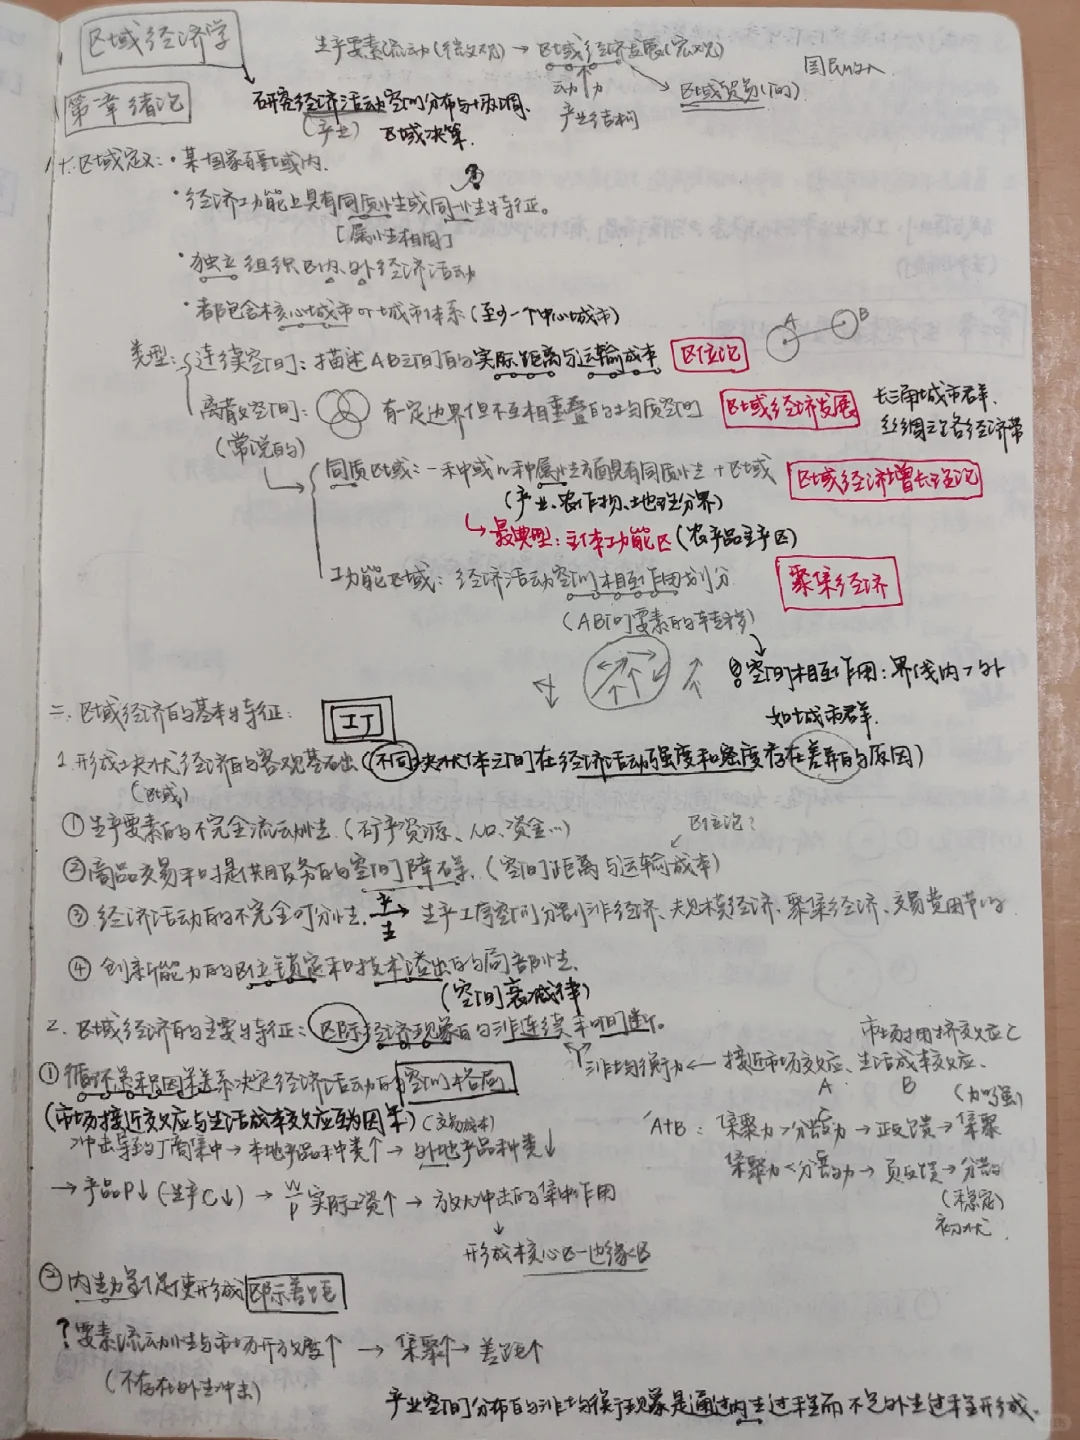 区域经济学
生产要素流动(微观) → 区域经济发展(宏观)
国民收入
动力
产业结构
区域贸易(间)
第一章 绪论
研究经济活动空间分布与协调.
(产业) 区域决策.
一.区域定义: · 某国家疆域内.
· 经济功能上具有同质性或同一性特征。
[属性相同]
· 独立组织区内、外经济活动
· 都包含核心城市 or 城市体系 (至少一个中心城市)
A B
类型: 连续空间: 描述AB之间的实际距离与运输成本 区位论
离散空间: 有一定边界但不互相重叠的均质空间 区域经济发展 长三角城市群.
(常说的) 丝绸之路经济带
同质区域: 一种或几种属性方面具有同质性 + 区域 区域经济增长理论
(产业、农作物、地理分界)
↳ 最典型: 主体功能区 (农产品主产区)
功能区域: 经济活动空间相互作用划分 聚集经济
(AB间要素的转移)
空间相互作用: 界线内 > 外
如城市群.
二. 区域经济的基本特征:
1. 形成块状经济的客观基础 (不同块状体之间在经济活动强度和密度存在差异的原因)
(区域)
① 生产要素的不完全流动性. (矿产资源、人口、资金...)
区位论?
② 商品交易和提供服务的空间障碍. (空间距离与运输成本)
③ 经济活动的不完全可分性. 产生→ 生产工序空间分割非经济、规模经济、聚集经济、交易费用节约
④ 创新能力的区位锁定和技术溢出的局部性.
(空间衰减律)
2. 区域经济的主要特征: 区际经济现象的非连续和间断。
市场拥挤效应 C
非均衡力 ← 接近市场效应、生活成本效应.
A B
① 循环累积因果关系决定经济活动的空间格局
(力强)
(市场接近效应与生活成本效应互为因果) (交易成本)
A+B: 集聚力 > 分散力 → 正反馈 → 集聚
冲击导致厂商集中 → 本地产品种类↑ → 外地产品种类↓
集聚力 < 分散力 → 负反馈 → 分散
(稳定)
初状
→ 产品P↓ (生产C↓) → W/P 实际工资↑ → 放大冲击的集中作用
↓
形成核心区—边缘区
② 内生力量促使形成区际差距
? 要素流动性与市场开放度↑ → 集聚↑ → 差距↑
(不存在外生冲击)
产业空间分布的非均衡现象是通过内生过程而不是外生过程形成.